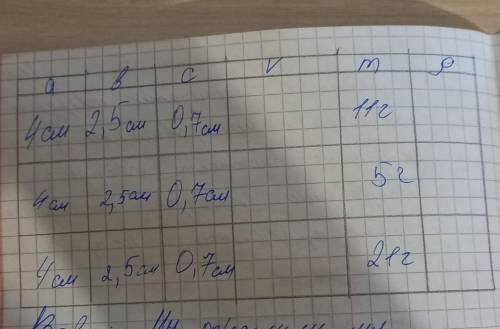 a в c V m ρ
4см 2,5см 0,7см 11г
4см 2,5см 0,7см 5г
4см 2,5см 0,7см 21г